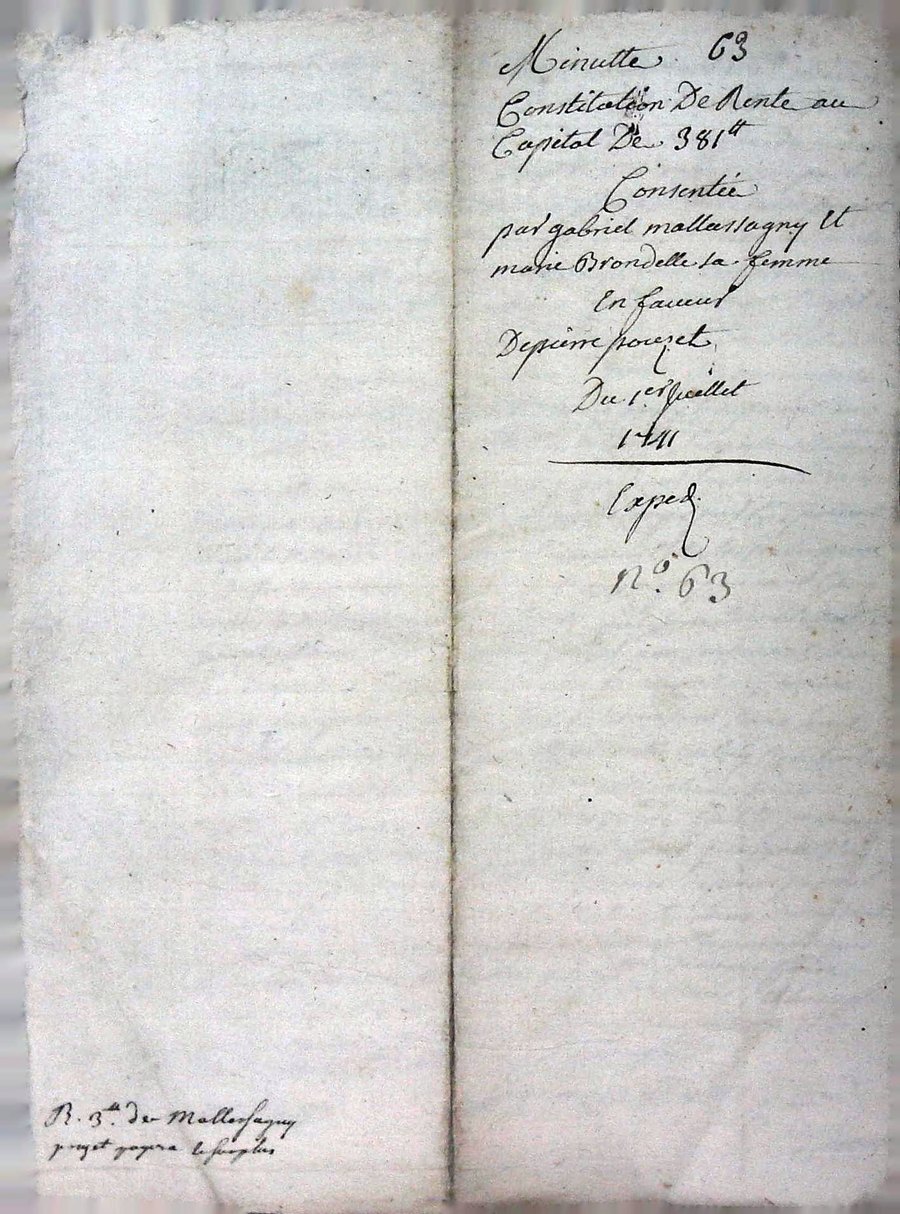 Minutte. 63
Constitution De Rente au
Capital De 381tt
Consentée
par gabriel mallassagny Et
marie Brondelle sa femme
En faveur
De pierre pouzet
Du 1er Juillet
1741
Exped
N.o 63
R. 3tt. de Mallassagny
payera le surplus